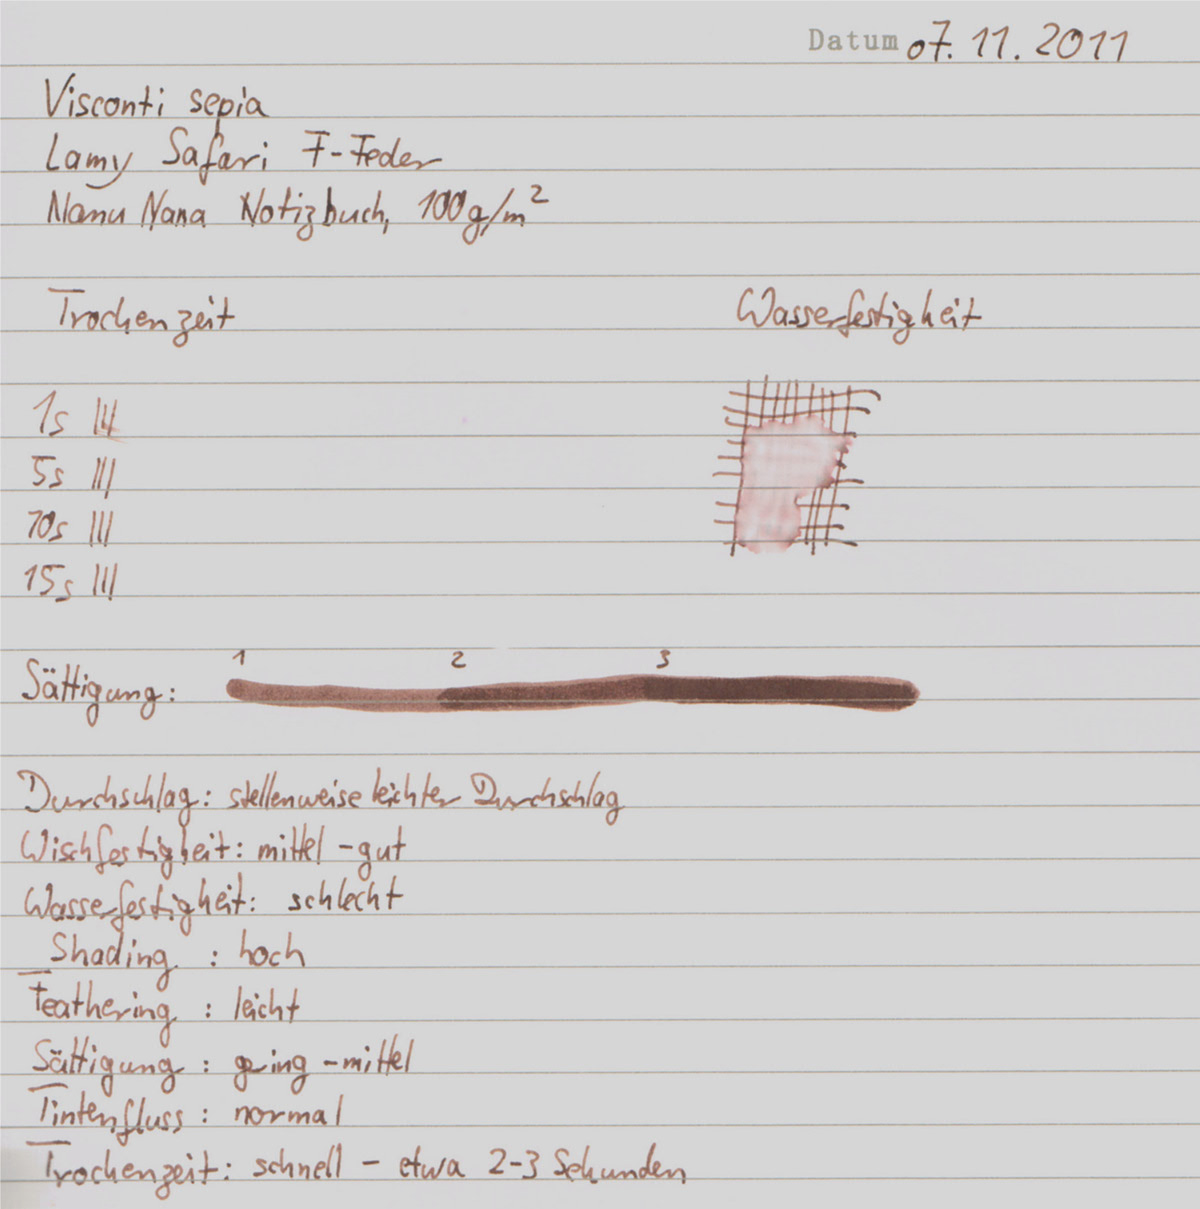 Datum 07.11.2011
Visconti sepia
Lamy Safari F-Feder
Nanu Nana Notizbuch, 100g/m²
Trockenzeit
Wasserfestigkeit
1s
5s
10s
15s
1 2 3
Sättigung:
Durchschlag: stellenweise leichter Durchschlag
Wischfestigkeit: mittel - gut
Wasserfestigkeit: schlecht
Shading : hoch
Feathering : leicht
Sättigung : gering - mittel
Tintenfluss : normal
Trockenzeit: schnell - etwa 2-3 Sekunden